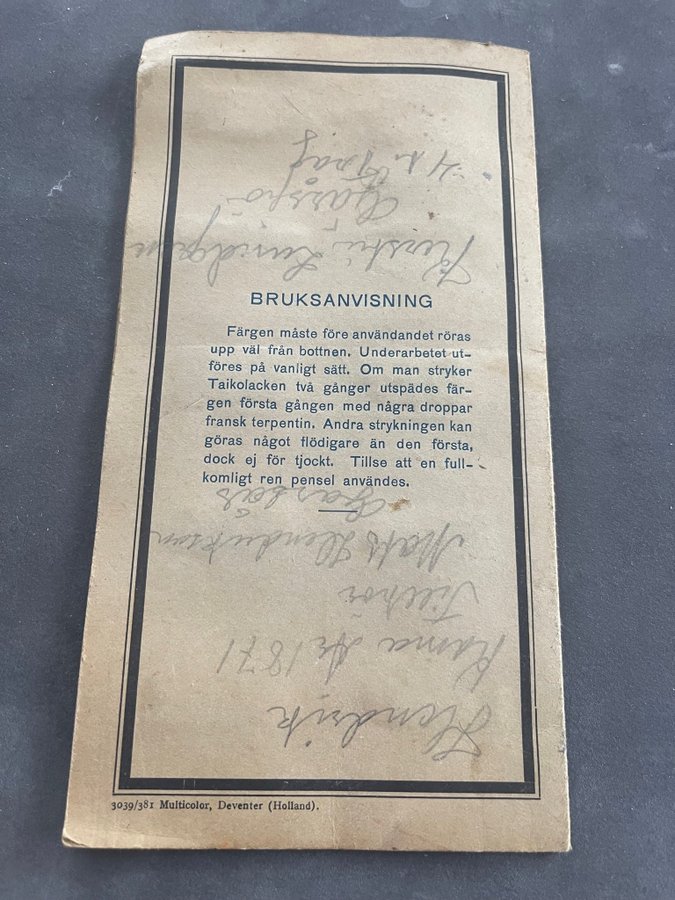 BRUKSANVISNING
Färgen måste före användandet röras
upp väl från bottnen. Underarbetet ut-
föres på vanligt sätt. Om man stryker
Taikolacken två gånger utspädes fär-
gen första gången med några droppar
fransk terpentin. Andra strykningen kan
göras något flödigare än den första,
dock ej för tjockt. Tillse att en full-
komligt ren pensel användes.
3039/381 Multicolor, Deventer (Holland).
Hendrik
Nr 1871
Tillhör
Mats Hendrikson